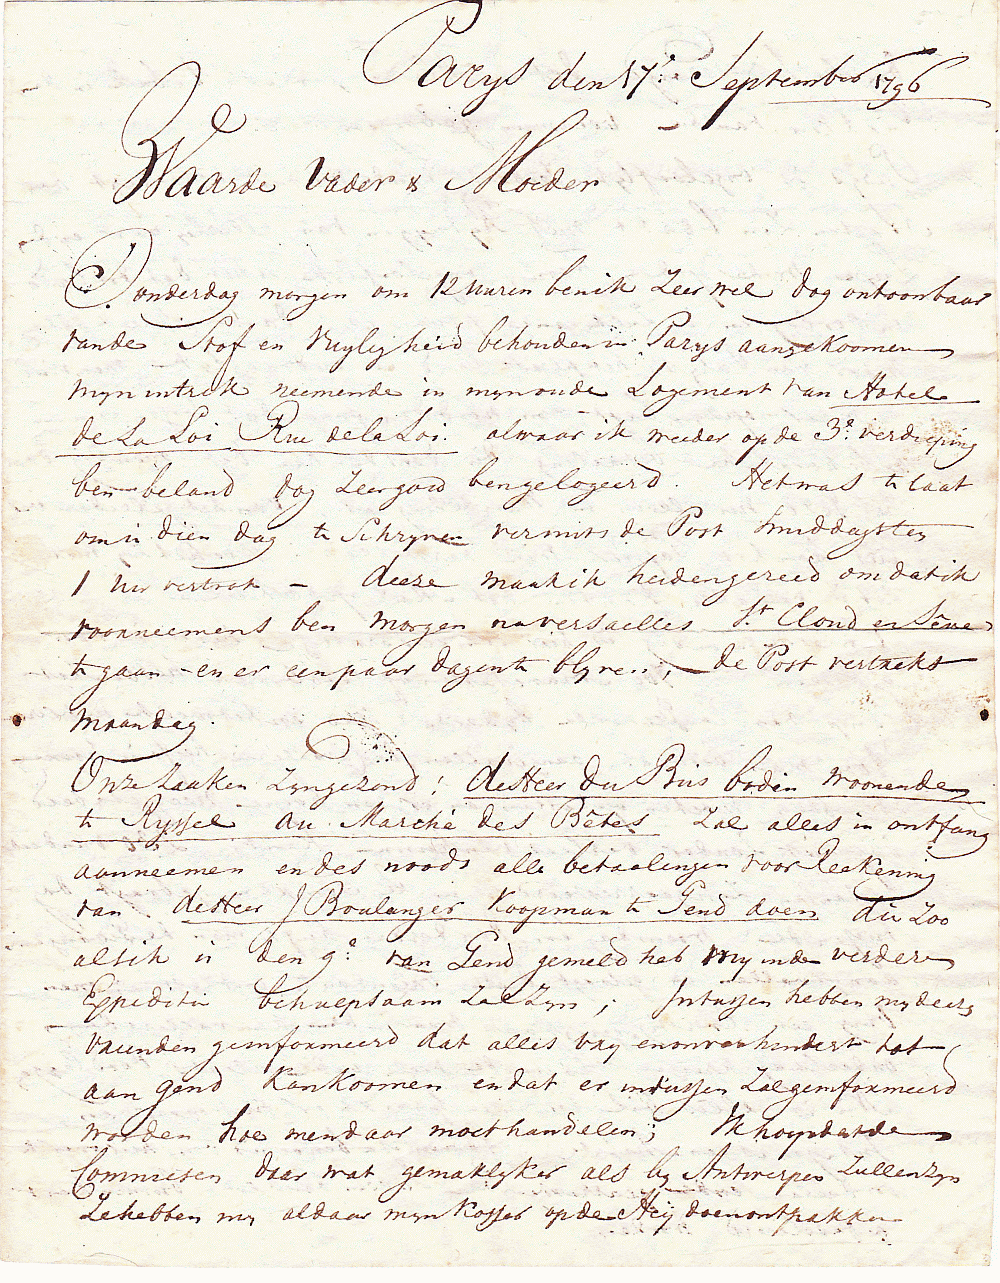 Parys den 17e September 1796
Waarde Vader & Moeder
Donderdag morgen om 12 uuren ben ik Zeer wel dog ontoonbaar
van de Stof en Vuyligheid behouden in Parys aangekoomen
myn intrek neemende in myn oude Logement van Hotel
de La Loi Rue de la Loi. alwaar ik weeder op de 3e verdieping
ben beland dog Zeer goed ben gelogeerd. Het was te laat
om u dien dag te Schryven vermits de Post smiddags ten
1 uur vertrok – deeze maak ik heden gereed om dat ik
voorneemens ben morgen na versaelles St Cloud en Sêve
te gaan en er een paar dagen te blyven, – de Post vertrekt
maandag.
Onze Zaaken Zyn gezond! de Heer du Bus bodin woonende
te Ryssel au Marché des Bêtes Zal alles in ontfang
aanneemen en des noods alle betaalingen voor Reekening
van de Heer J Boulanger Koopman te Gend doen die Zoo
als ik u den 9e van Gend gemeld heb my in de verdere
Expeditie behulpsaam Zal Zyn; Intussen hebben my deeze
vrienden geinformeerd dat alles vry en onverhindert tot
aan gend kan koomen en dat er intussen Zal geinformeerd
worden hoe men daar moet handelen; Ik hoop dat de
Commiesen daar wat gemaklyker als by Antwerpen Zullen Zyn
Ze hebben my aldaar myn Koffer op de Heij doen ontpakken